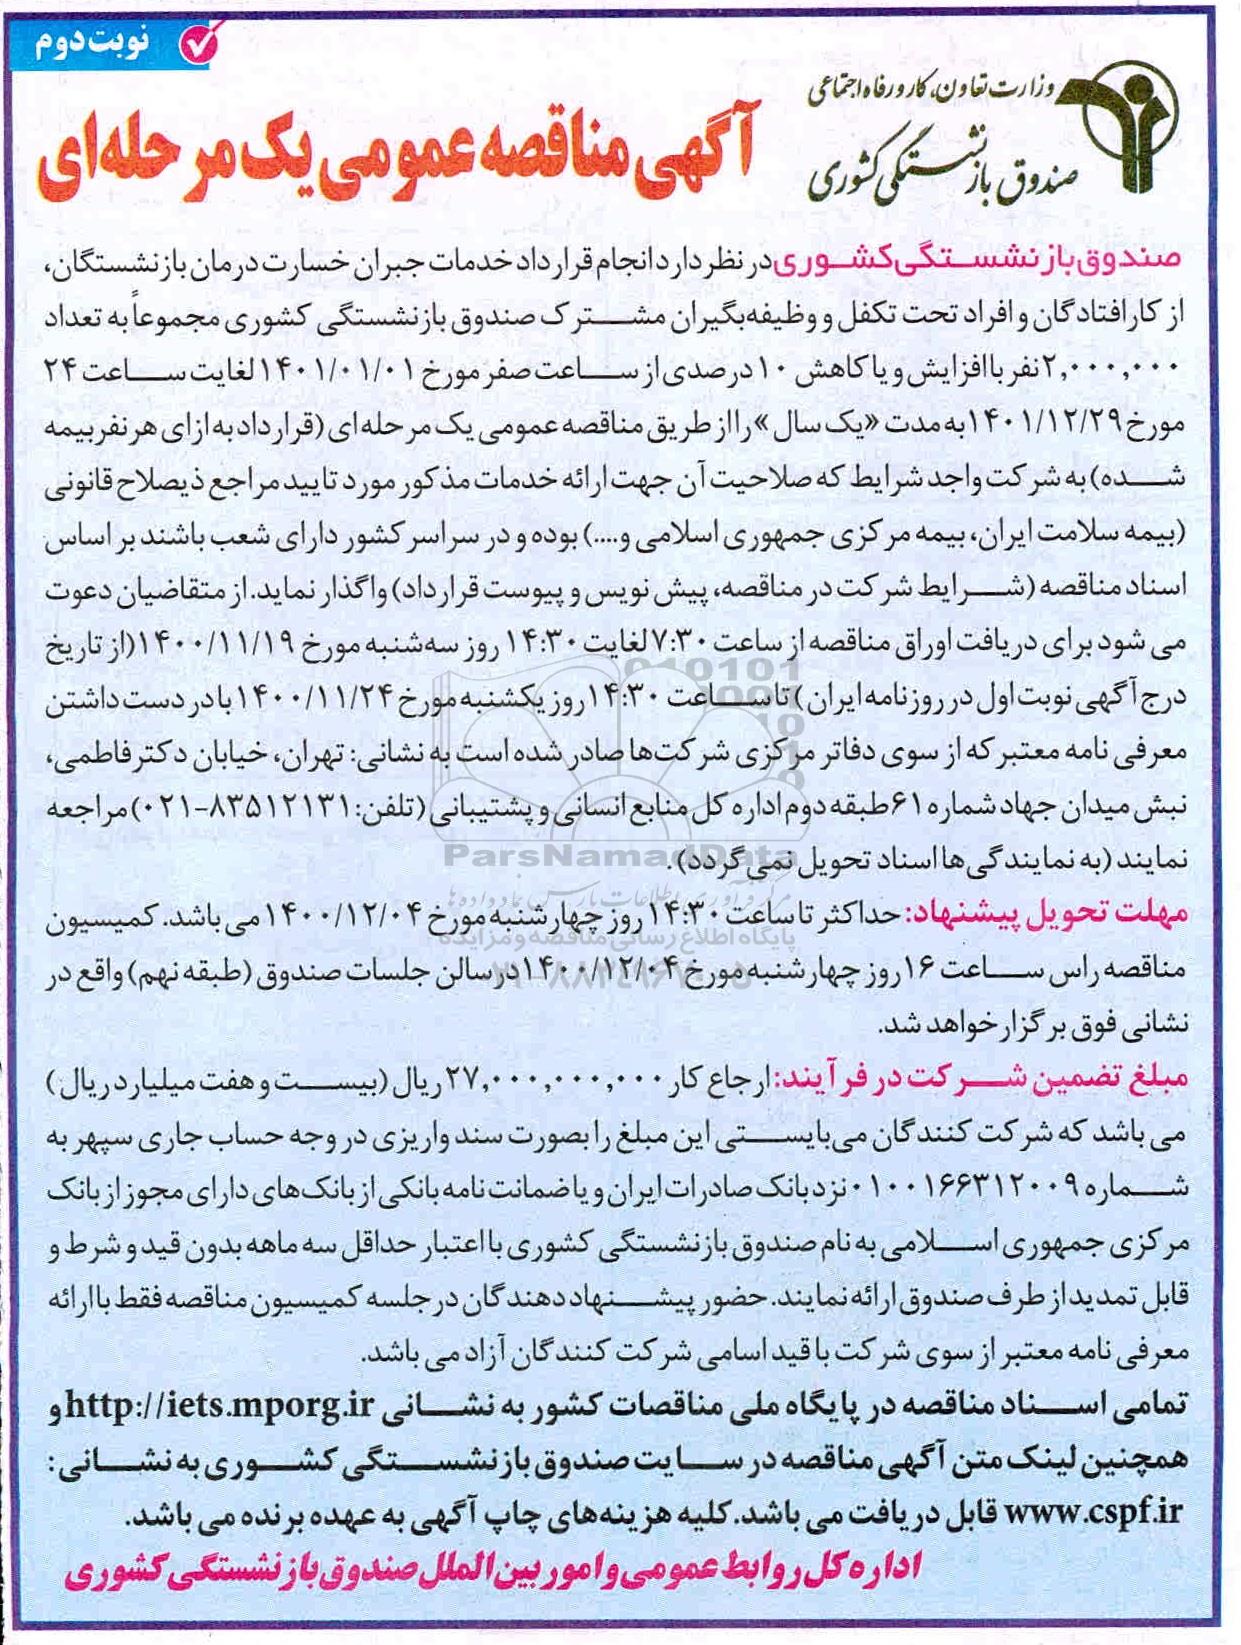 نوبت دوم
وزارت تعاون، کار و رفاه اجتماعی
صندوق بازنشستگی کشوری
آگهی مناقصه عمومی یک مرحله‌ای
صندوق بازنشستگی کشوری در نظر دارد انجام قرارداد خدمات جبران خسارت درمان بازنشستگان،
از کارافتادگان و افراد تحت تکفل و وظیفه‌بگیران مشترک صندوق بازنشستگی کشوری مجموعاً به تعداد
۲,۰۰۰,۰۰۰ نفر با افزایش و یا کاهش ۱۰ درصدی از ساعت صفر مورخ ۱۴۰۱/۰۱/۰۱ لغایت ساعت ۲۴
مورخ ۱۴۰۱/۱۲/۲۹ به مدت «یک سال» را از طریق مناقصه عمومی یک مرحله‌ای (قرارداد به ازای هر نفر بیمه
شده) به شرکت واجد شرایط که صلاحیت آن جهت ارائه خدمات مذکور مورد تایید مراجع ذیصلاح قانونی
(بیمه سلامت ایران، بیمه مرکزی جمهوری اسلامی و....) بوده و در سراسر کشور دارای شعب باشند بر اساس
اسناد مناقصه (شرایط شرکت در مناقصه، پیش نویس و پیوست قرارداد) واگذار نماید. از متقاضیان دعوت
می شود برای دریافت اوراق مناقصه از ساعت ۷:۳۰ لغایت ۱۴:۳۰ روز سه‌شنبه مورخ ۱۴۰۰/۱۱/۱۹ (از تاریخ
درج آگهی نوبت اول در روزنامه ایران) تا ساعت ۱۴:۳۰ روز یکشنبه مورخ ۱۴۰۰/۱۱/۲۴ با در دست داشتن
معرفی نامه معتبر که از سوی دفاتر مرکزی شرکت‌ها صادر شده است به نشانی: تهران، خیابان دکتر فاطمی،
نبش میدان جهاد شماره ۶۱ طبقه دوم اداره کل منابع انسانی و پشتیبانی (تلفن: ۸۳۵۱۲۱۳۱-۰۲۱) مراجعه
نمایند (به نمایندگی ها اسناد تحویل نمی گردد).
ParsNamadData
مرکز فرآوری اطلاعات پارس نماد داده‌ها
مهلت تحویل پیشنهاد: حداکثر تا ساعت ۱۴:۳۰ روز چهارشنبه مورخ ۱۴۰۰/۱۲/۰۴ می باشد. کمیسیون
پایگاه اطلاع رسانی مناقصه و مزایده
مناقصه راس ساعت ۱۶ روز چهارشنبه مورخ ۱۴۰۰/۱۲/۰۴ در سالن جلسات صندوق (طبقه نهم) واقع در
نشانی فوق برگزار خواهد شد.
مبلغ تضمین شرکت در فرآیند: ارجاع کار ۲۷,۰۰۰,۰۰۰,۰۰۰ ریال (بیست و هفت میلیارد ریال)
می باشد که شرکت کنندگان می‌بایستی این مبلغ را بصورت سند واریزی در وجه حساب جاری سپهر به
شماره ۰۱۰۰۱۶۶۳۱۲۰۰۹ نزد بانک صادرات ایران و یا ضمانت نامه بانکی از بانک‌های دارای مجوز از بانک
مرکزی جمهوری اسلامی به نام صندوق بازنشستگی کشوری با اعتبار حداقل سه ماهه بدون قید و شرط و
قابل تمدید از طرف صندوق ارائه نمایند. حضور پیشنهاد دهندگان در جلسه کمیسیون مناقصه فقط با ارائه
معرفی نامه معتبر از سوی شرکت با قید اسامی شرکت کنندگان آزاد می باشد.
تمامی اسناد مناقصه در پایگاه ملی مناقصات کشور به نشانی http://iets.mporg.ir و
همچنین لینک متن آگهی مناقصه در سایت صندوق بازنشستگی کشوری به نشانی:
www.cspf.ir قابل دریافت می باشد. کلیه هزینه‌های چاپ آگهی به عهده برنده می باشد.
اداره کل روابط عمومی و امور بین الملل صندوق بازنشستگی کشوری